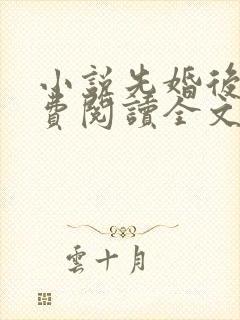 小說先婚後
費閱讀全文
雲十月